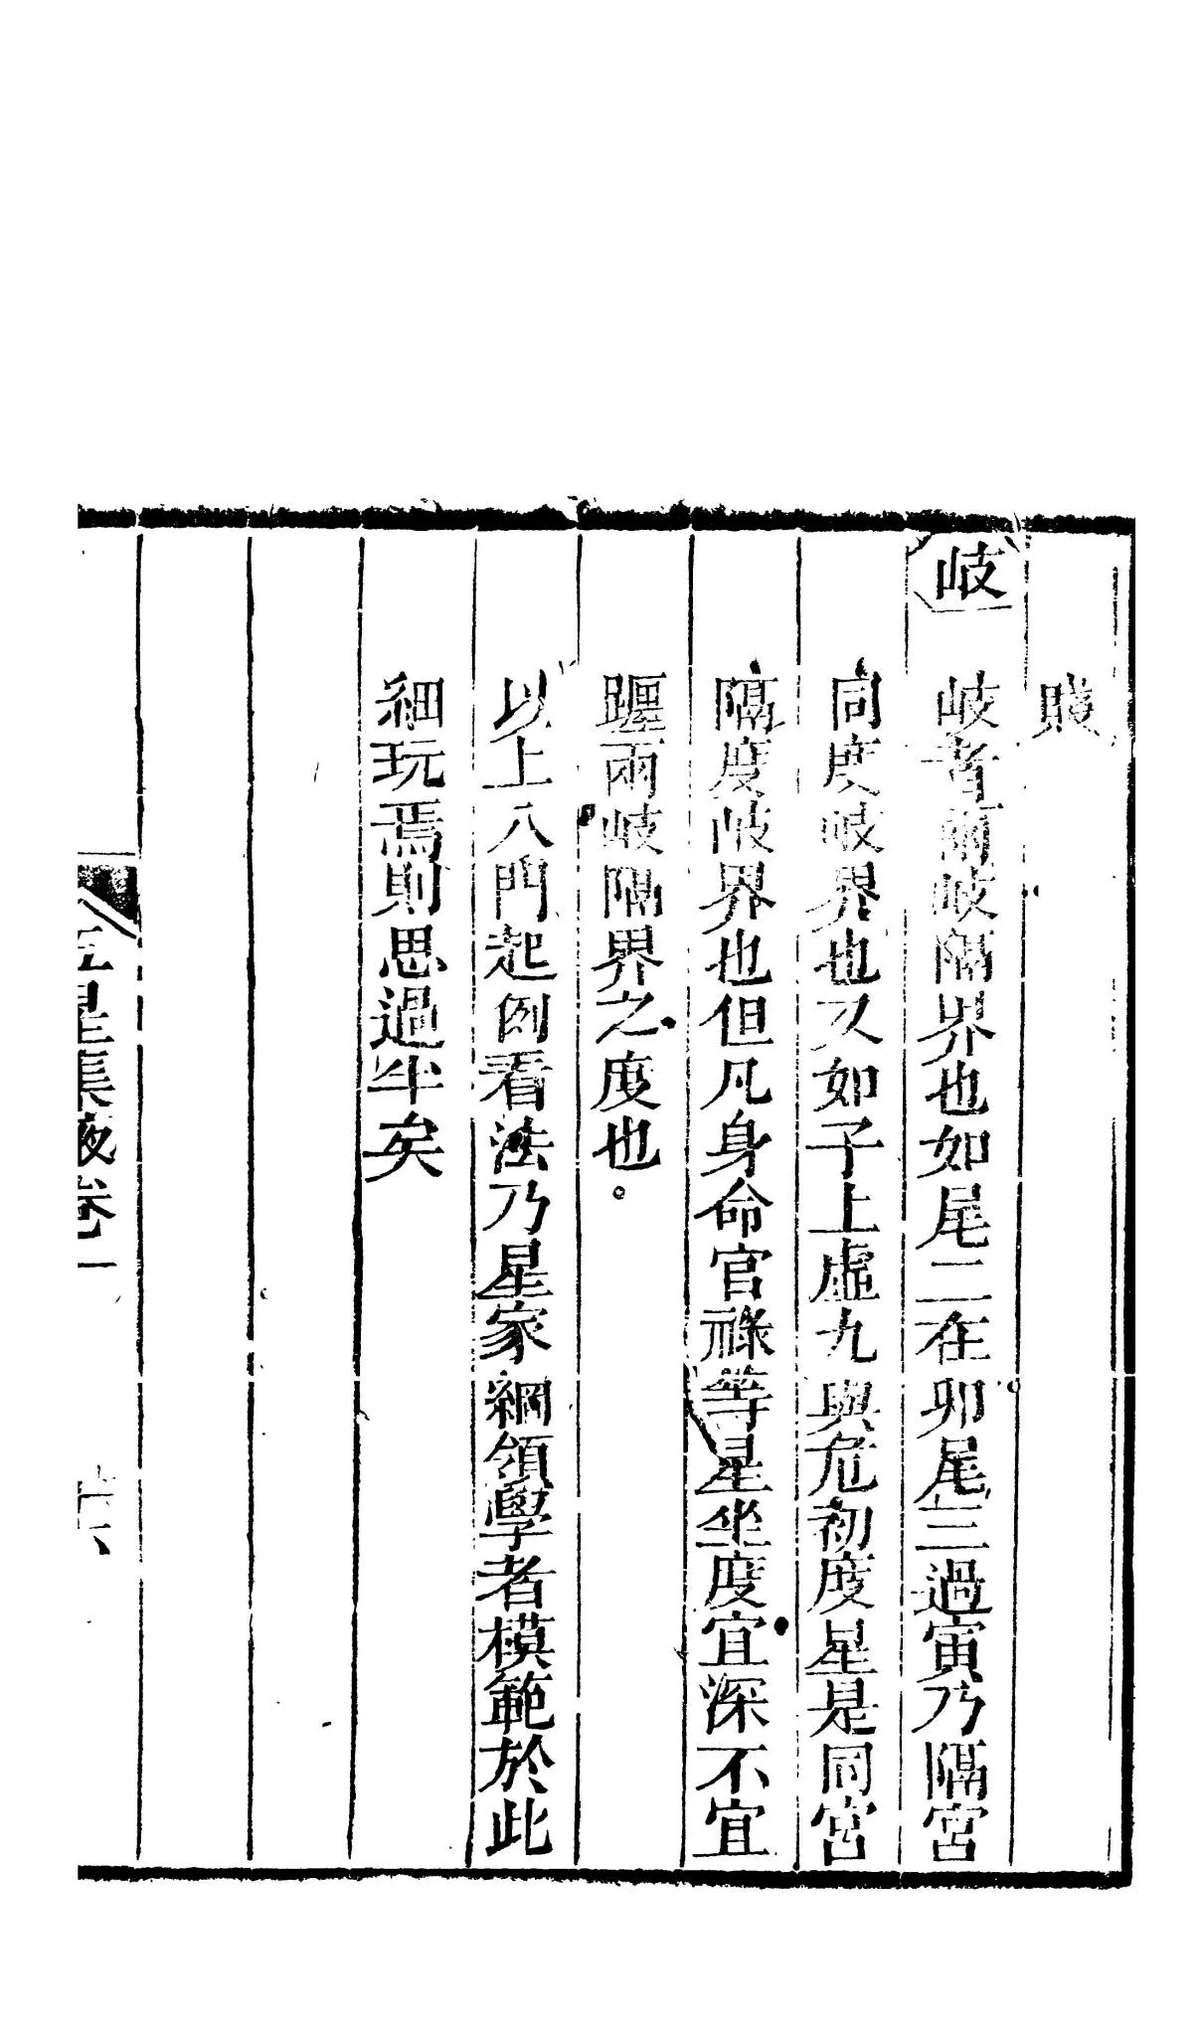 賤
岐　岐者兩岐隔界也如尾二在卯尾三過寅乃隔宮
同度岐界也又如子上虛九與危初度星是同宮
隔度岐界也但凡身命官祿等星坐度宜深不宜
躔兩岐隔界之度也。
以上八門起例看法乃星家綱領學者模範於此
細玩焉則思過半矣
五星集腋卷一
六